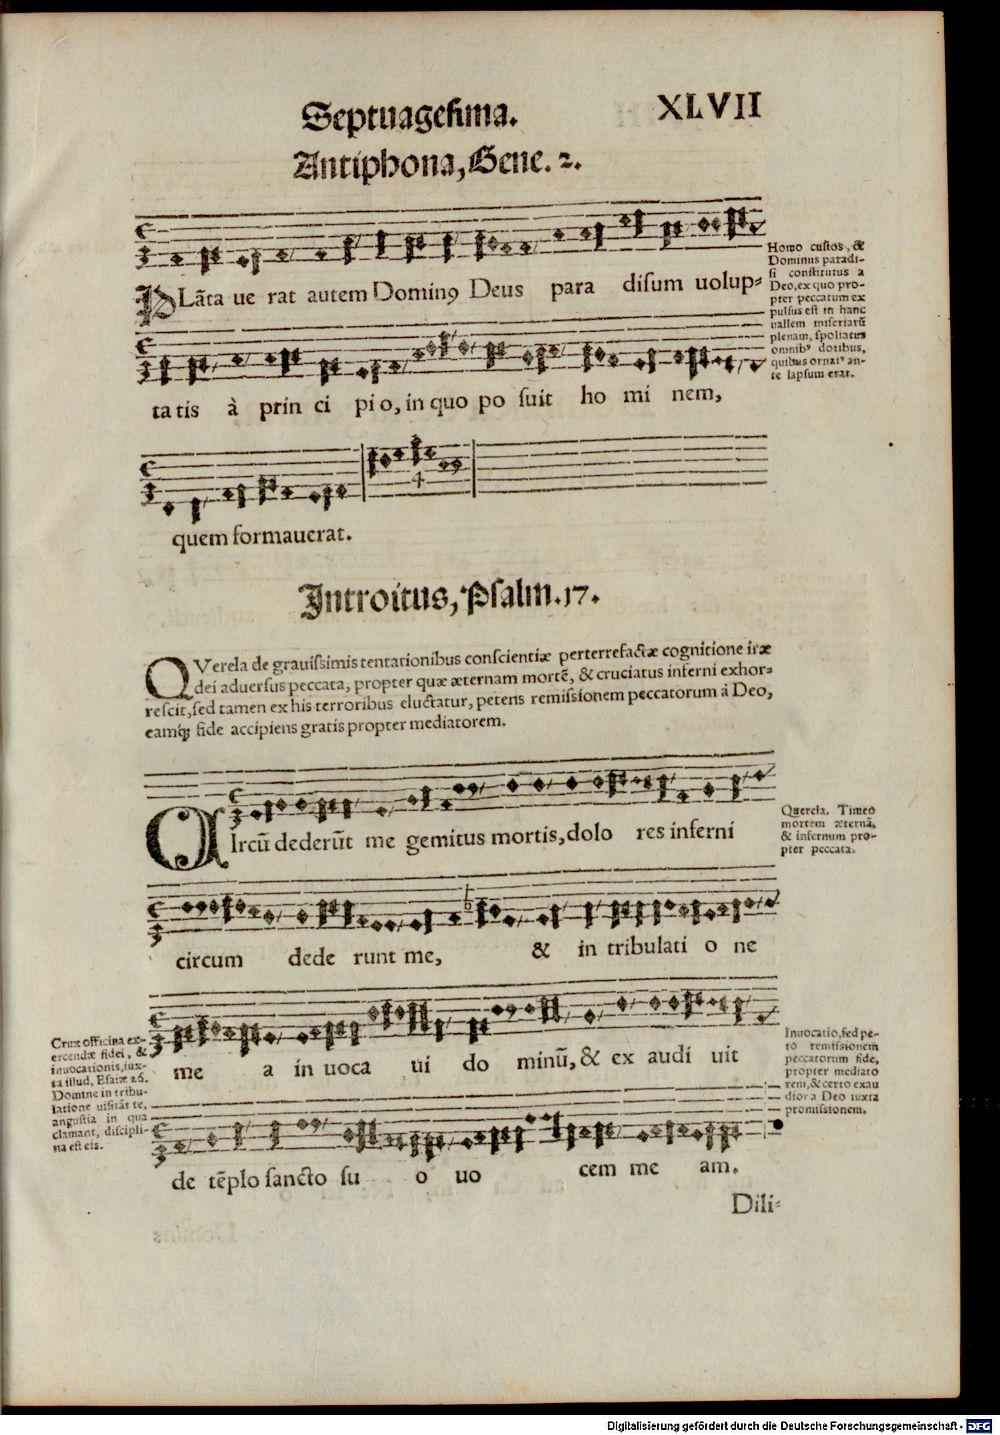 Septuagesima.
XLVII
Antiphona, Gene. 2.
PLãta ue rat autem Dominꝰ Deus para disum uolup-
Homo custos, &
Dominus paradi-
si constitutus a
Deo, ex quo pro-
pter peccatum ex
pulsus est in hanc
uallem miseriarũ
plenam, spoliatus
omnibꝰ dotibus,
quibus ornatꝰ an-
te lapsum erat.
ta tis à prin ci pi o, in quo po suit ho mi nem,
4
quem formauerat.
Introitus, Psalm. 17.
QVerela de grauissimis tentationibus conscientiæ perterrefactæ cognitione iræ
dei aduersus peccata, propter quæ æternam mortẽ, & cruciatus inferni exhor-
rescit, sed tamen ex his terroribus eluctatur, petens remissionem peccatorum à Deo,
eamq́; fide accipiens gratis propter mediatorem.
CIrcũ dederũt me gemitus mortis, dolo res inferni
Querela. Timeo
mortem æternã,
& infernum pro-
pter peccata.
circum dede runt me, & in tribulati o ne
Crux officina ex-
ercendæ fidei, &
inuocationis, iux-
ta illud, Esaiæ 26.
Domine in tribu-
latione uisitãt te,
angustia in qua
clamant, discipli-
na est eis.
me a in uoca ui do minũ, & ex audi uit
Inuocatio, sed pe-
to remissionem
peccatorum fide,
propter mediato
rem, & certo exau
dior a Deo iuxta
promissionem.
de tẽplo sancto su o uo cem me am.
Dili-
Digitalisierung gefördert durch die Deutsche Forschungsgemeinschaft - DFG